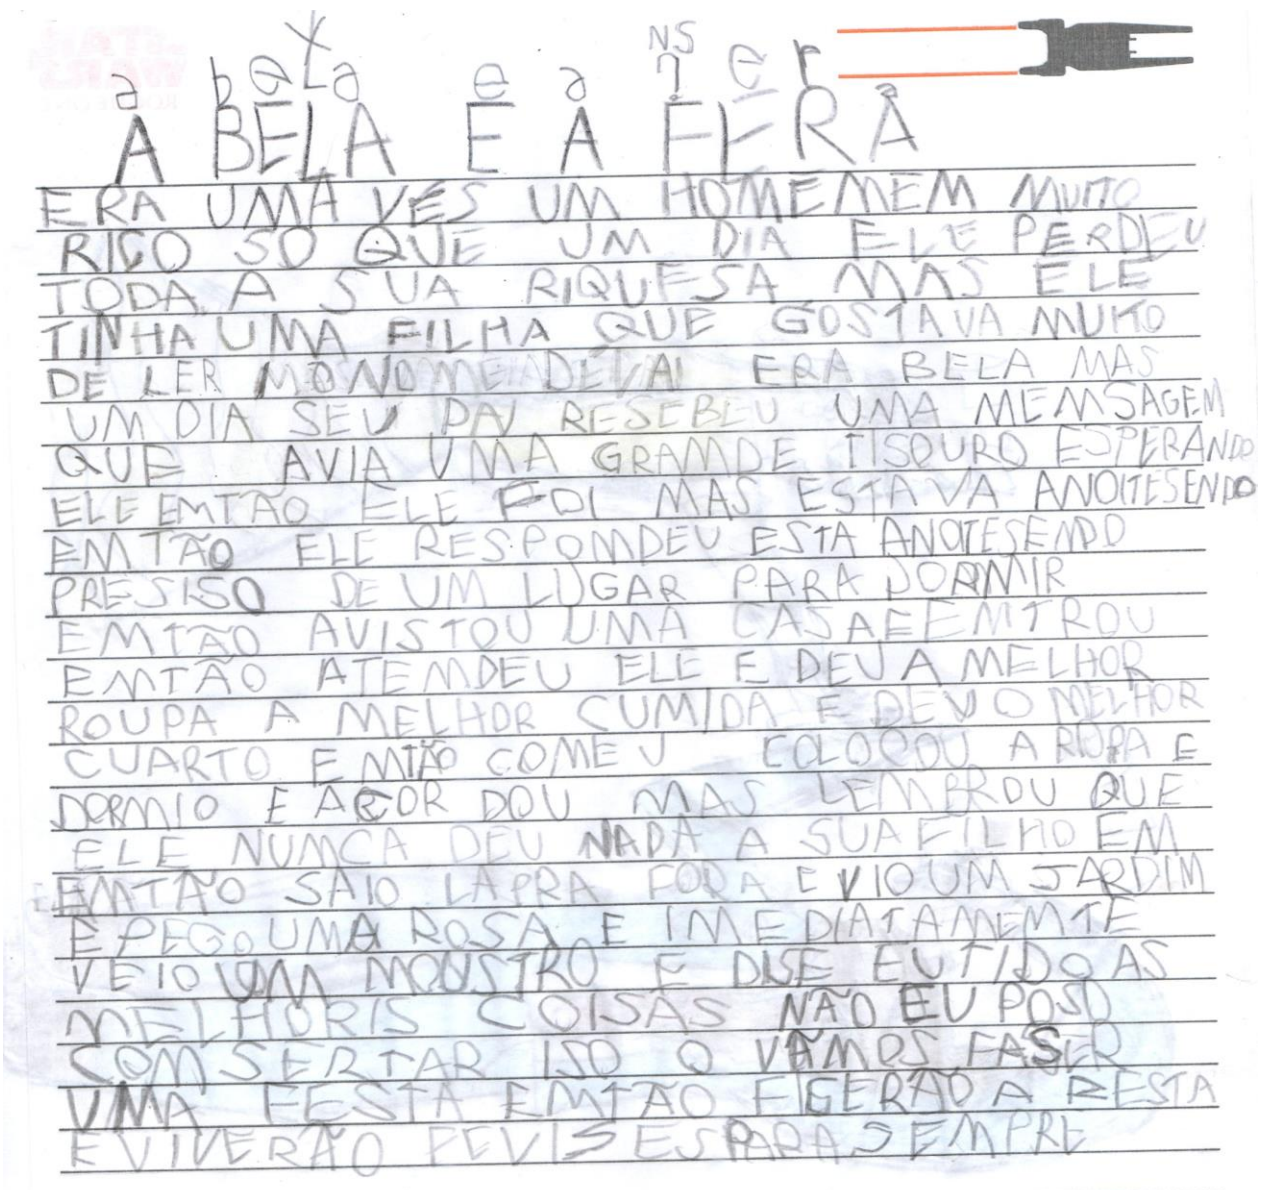 a beLa e a ? e r a
NS
A BELA E A FERA
ERA UMA VES UM HOMEMEM MUITO
RICO SO QUE UM DIA ELE PERDEU
TODA A SUA RIQUESA MAS ELE
TINHA UMA FILHA QUE GOSTAVA MUITO
DE LER ERA BELA MAS
UM DIA SEU PAI RESEBEU UMA MEMSAGEM
QUE AVIA UMA GRAMDE TISOURO ESPERANDO
ELE EMTÃO ELE FOI MAS ESTAVA ANOITESENDO
EMTÃO ELE RESPOMDEU ESTA ANOITESENDO
PRESISO DE UM LUGAR PARA DORMIR
EMTÃO AVISTOU UMA CASA E EMTROU
EMTÃO ATEMDEU ELE E DEU A MELHOR
ROUPA A MELHOR CUMIDA E DEU O MELHOR
CUARTO EMTÃO COMEU COLOCOU A ROPA E
DORMIO E ACORDOU MAS LEMBROU QUE
ELE NUMCA DEU NADA A SUA FILHO EM
EMTÃO SAIO LAPRA FORA E VIO UM JARDIM
E PEGO UMA ROSA E IMEDIATAMEMTE
VEIO UM MOUSTRO E DISE EU TI DO AS
MELHORIS COISAS NÃO EU POSO
COMSERTAR ISO O VAMOS FASER
UMA FESTA EMTÃO FIGERÃO A FESTA
E VIVERÃO FEVISES PARA SEMPRE